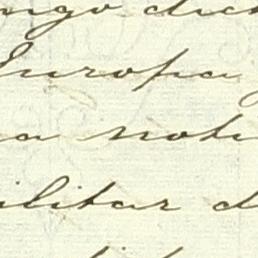 ngo dich
Europa y
a noti
ilitar d